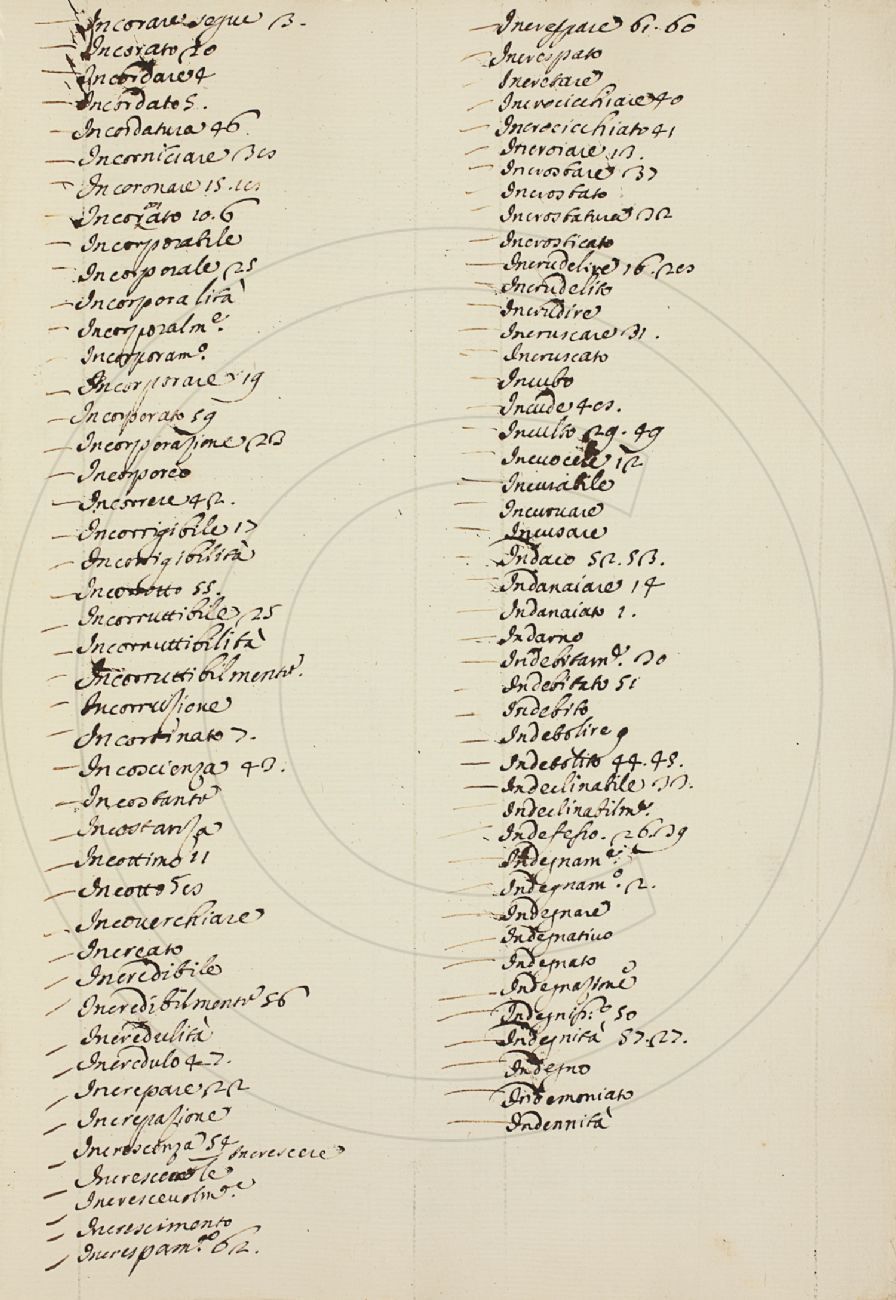 Incorare segue 3.
Incorato 20
Incordare 4
Incordato 5.
Incordatura 46
Incorniciare
Incoronare 15.
Incoronato 10. 6
Incorporabile
Incorporale 25
Incorporalità
Incorporalm.e
Incorporam.o
Incorporare 19
Incorporato 59
Incorporazione 23
Incorporeo
Incorrere 42.
Incorrigibile 17
Incorrigibilità
Incorrotto 55.
Incorruttibile 25
Incorruttibilità
Incorruttibilmente.
Incorruzione
Incortinato 7.
Incoscienza 43.
Incostante
Incostanza
Incottimo 11
Incotto
Incoverchiare
Increato
Incredibile
Incredibilmente 56
Incredulità
Incredulo 47.
Increpare 22
Increpazione
Increscenza 54 Increscere
Increscevole
Increscevolm.e
Increscimento
Increspam.to 62.
Increspare 61. 60
Increspato
Incretare
Incrocicchiare 40
Incrocicchiato 41
Incroiare 13.
Incrostare 37
Incrostato
Incrostatura 32
Incrosticato
Incrudelire 16.
Incrudelito
Incrudire
Incruscare 31.
Incruscato
Incubo
Incude
Inculto 29. 49
Incuocere 12
Incurabile
Incurvare
Incusare
Indaco 52. 53.
Indanaiare 14
Indanaiato 1.
Indarno
Indebitam.e 30
Indebitato 51
Indebito
Indebolire 9
Indebolito 44. 45.
Indeclinabile 33.
Indeclinabilm.e
Indefesso. 26. 39
Indegnam.e
Indegnam.o 2.
Indegnare
Indegnativo
Indegnato
Indegnazione
Indegniss.o 50
Indegnità 57. 27.
Indegno
Indemoniato
Indennità